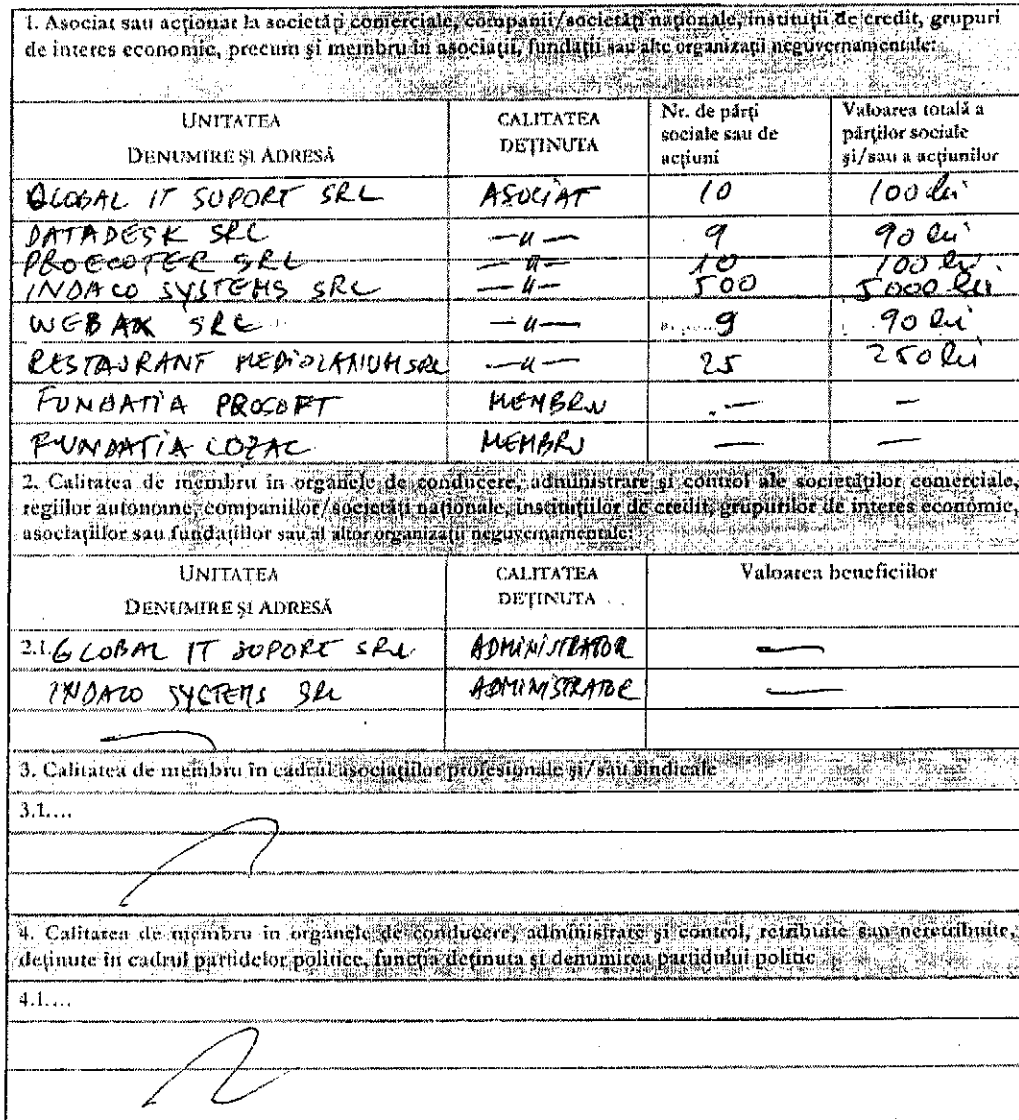 1. Asociat sau acționar la societăți comerciale, companii/societăți naționale, instituții de credit, grupuri
de interes economic, precum și membru în asociații, fundații sau alte organizații neguvernamentale:
UNITATEA
DENUMIRE ȘI ADRESĂ
CALITATEA
DEȚINUTA
Nr. de părți
sociale sau de
acțiuni
Valoarea totală a
părților sociale
și/sau a acțiunilor
GLOBAL IT SUPORT SRL ASOCIAT 10 100 lei
DATADESK SRL —u— 9 90 lei
PROECOTER SRL —u— 10 100 lei
INDACO SYSTEMS SRL —u— 500 5000 lei
WEBAX SRL —u— 9 90 lei
RESTAURANT MEDIOLANUM SRL —u— 25 250 lei
FUNDATIA PROSOFT MEMBRU — —
FUNDATIA COZAC MEMBRU — —
2. Calitatea de membru în organele de conducere, administrare și control ale societăților comerciale,
regiilor autonome, companiilor/societăți naționale, instituțiilor de credit, grupurilor de interes economic,
asociațiilor sau fundațiilor sau al altor organizații neguvernamentale:
UNITATEA
DENUMIRE ȘI ADRESĂ
CALITATEA
DEȚINUTA
Valoarea beneficiilor
2.1. GLOBAL IT SUPORT SRL ADMINISTRATOR —
INDACO SYSTEMS SRL ADMINISTRATOR —
3. Calitatea de membru în cadrul asociațiilor profesionale și/sau sindicale
3.1....
4. Calitatea de membru în organele de conducere, administrare și control, retribuite sau neretribuite,
deținute în cadrul partidelor politice, funcția deținuta și denumirea partidului politic
4.1....